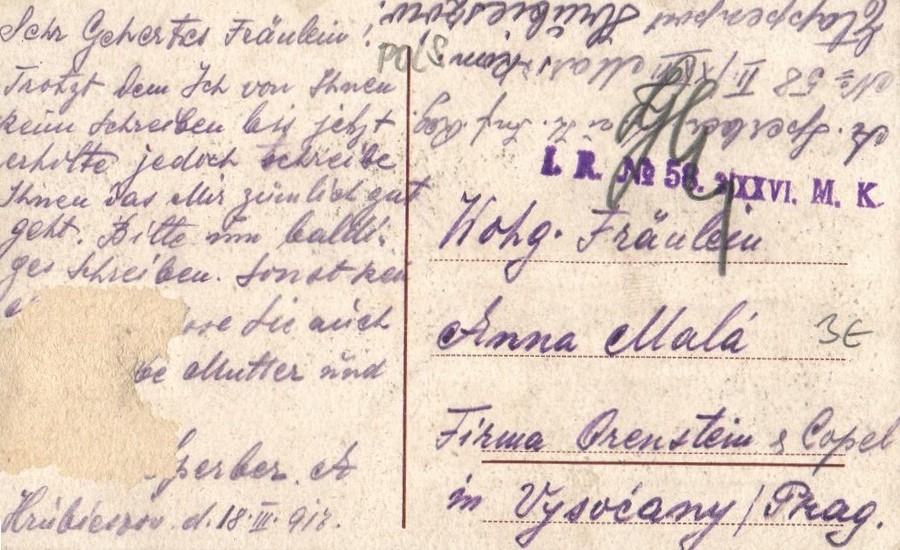 Sehr Gehertes Fräulein!
Trotzt dem Ich von Ihnen
keim schreiben bis jetzt
erhilte jedoch schreibe
Ihnen das Mir zümlich gut
geht. Bitte um baldi-
ges schreiben. Sonst kei
Sie auch
be Mutter und
Sperber. A
Hrubieszow. d. 18. III. 917.
POLS
A. Sperber k. u. k. Inf. Reg.
No 58 II/XXVI Marschkom
Etappenpost Hrubieszow!
I. R. No 58. XXVI. M. K.
Wohg. Fräulein
Anna Malá
BE
Firma Orenstein & Copel
in Vysočany / Prag.